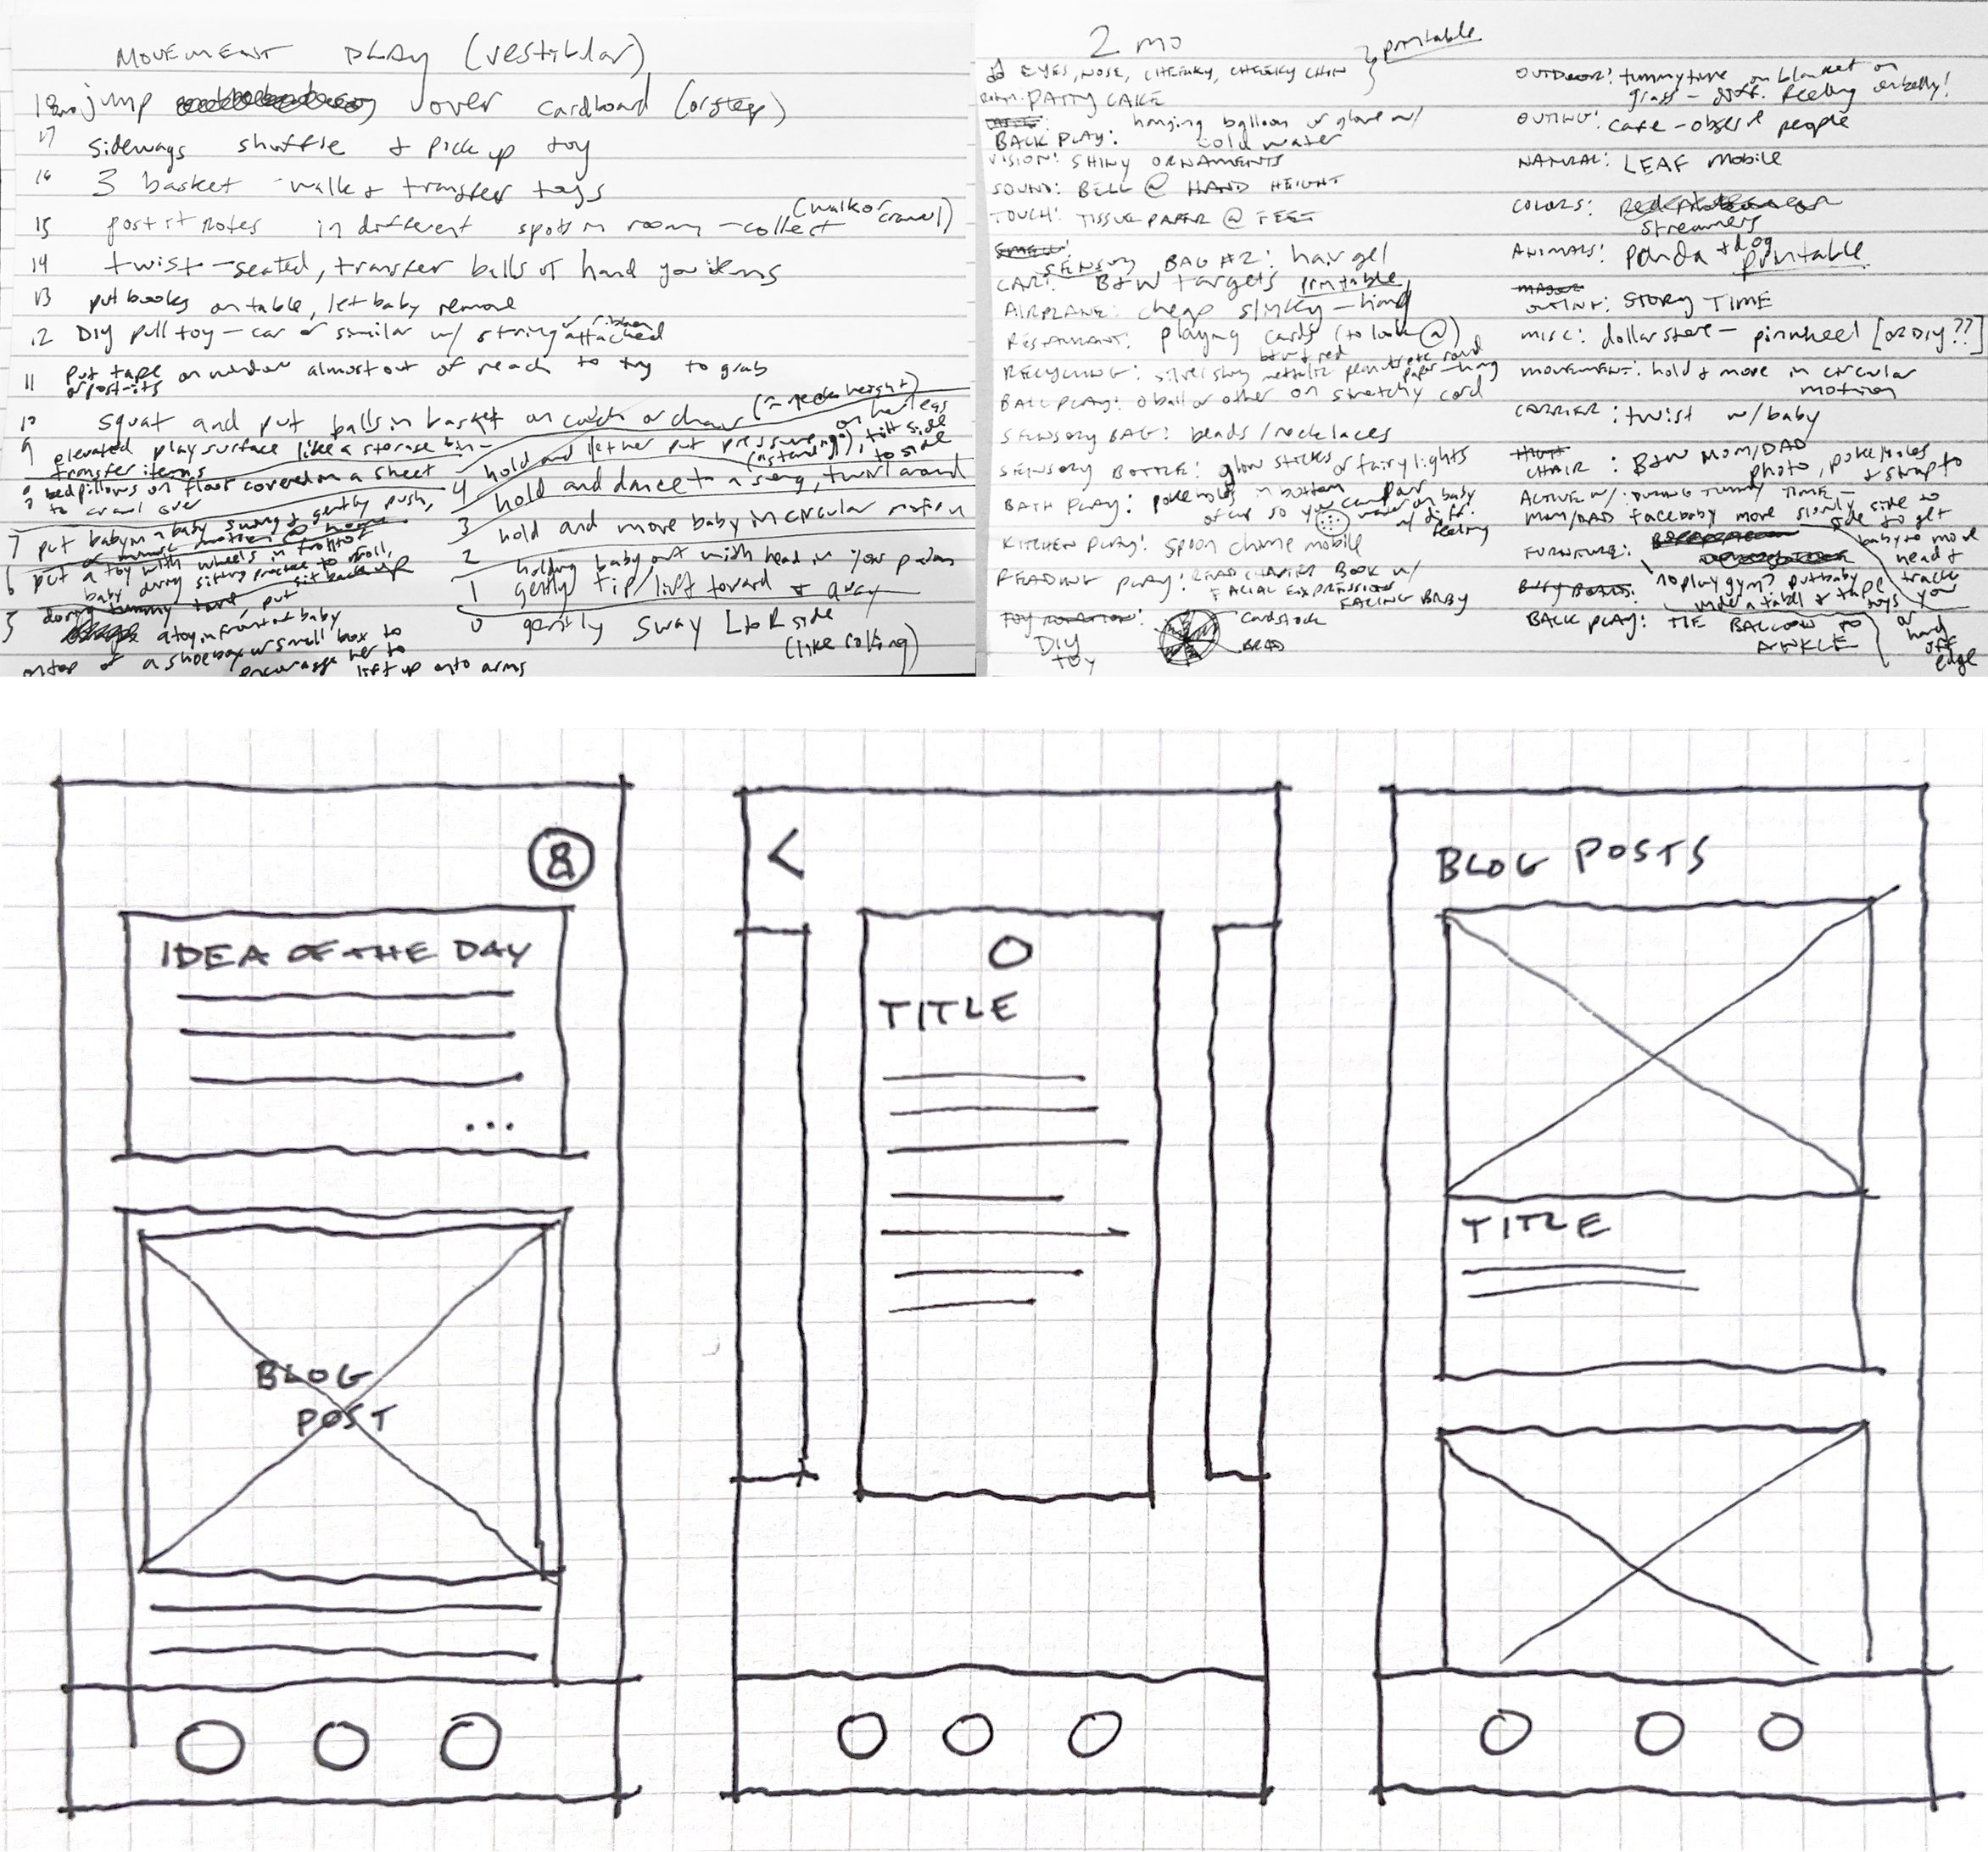 MOVEMENT PLAY (vestibular)
18mo jump over cardboard (or step)
17 sideways shuffle & pick up toy
16 3 basket - walk & transfer toys
15 post it notes in different spots in room - collect (walk or crawl)
14 twist - seated, transfer balls or hand you items
13 put books on table, let baby remove
12 DIY pull toy - car or similar w/ string or ribbon attached
11 put tape or post-its on window almost out of reach to try to grab
10 squat and put balls in basket on couch or chair
9 elevated play surface like a storage bin -
transfer items
8 bed pillows on floor covered in a sheet
to crawl over
7 put baby in a baby swing & gently push,
or mimic motion @ home
6 put a toy with wheels in front of
baby during sitting practice to roll,
sit back up
5 during tummy time, put
a toy in front of baby
on top of a shoebox or small box to
encourage her to
lift up onto arms
4 hold and let her put pressure on her legs
(in standing), tilt side
to side
hold and dance to a song, twirl around
3 hold and move baby in circular motion
2 holding baby out with head in your palms
1 gently tip/lift toward & away
0 gently sway L to R side
(like rolling)
2 mo
EYES, NOSE, CHEEKY, CHEEKY CHIN
} printable
PATTY CAKE
BACK PLAY: hanging balloon or glove w/
cold water
VISION: SHINY ORNAMENTS
SOUND: BELL @ HAND HEIGHT
TOUCH: TISSUE PAPER @ FEET
SENSORY BAG #2: hair gel
CAR: B+W targets printable
AIRPLANE: cheap slinky - hang
RESTAURANT: playing cards (to look @)
RECYCLING: silver shiny
BALL PLAY: O ball or other on stretchy cord
SENSORY BAG: beads / necklaces
SENSORY BOTTLE: glow sticks or fairy lights
BATH PLAY: poke holes in bottom
of cup so you can pour
water on baby
w/ diff.
feeling
KITCHEN PLAY: spoon chime mobile
READING PLAY: READ CHAPTER BOOK w/
FACIAL EXPRESSION
FACING BABY
TOY ROTATION:
DIY
TOY
CARDSTOCK
BRAD
OUTDOOR: tummy time on blanket on
grass - diff. feeling on belly!
OUTING: cafe - observe people
NATURAL: LEAF mobile
COLORS:
streamers
ANIMALS: panda + dog
printable
OUTING: STORY TIME
MISC: dollar store - pinwheel [or DIY??]
MOVEMENT: hold & move in circular
motion
CARRIER: twist w/ baby
CHAIR: B+W MOM/DAD
photo, poke holes
& strap to
ACTIVE w/ MOM/DAD: DURING TUMMY TIME -
face baby move slowly side to
side to get
baby to move
head &
track
you
FURNITURE:
no play gym? put baby
under a table & tape
toys
or
hang
off
edge
BUSY BOARD:
BACK PLAY: TIE BALLOON TO
ANKLE
IDEA OF THE DAY
...
BLOG
POST
<
TITLE
BLOG POSTS
TITLE